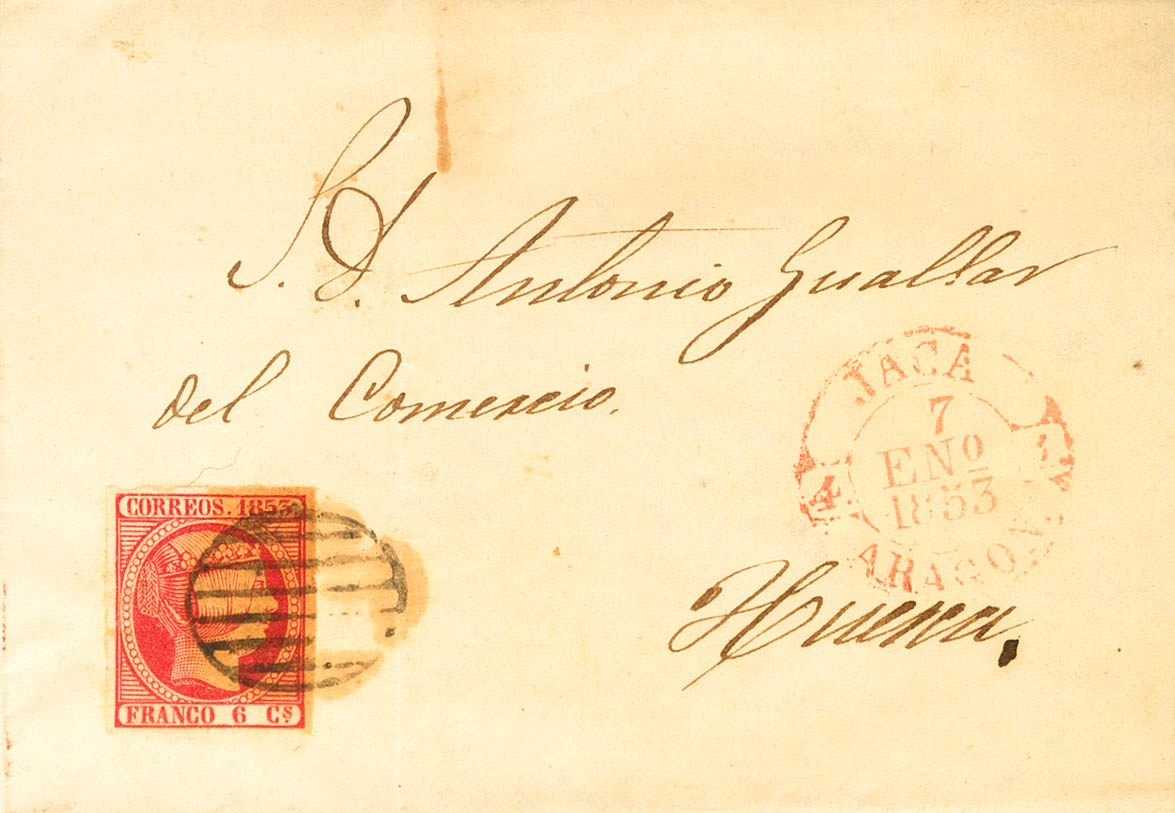 S. D. Antonio Guallar
del Comercio.
JACA
7
ENº
1853
ARAGON
CORREOS. 1853.
FRANCO 6 Cs
Huesca.